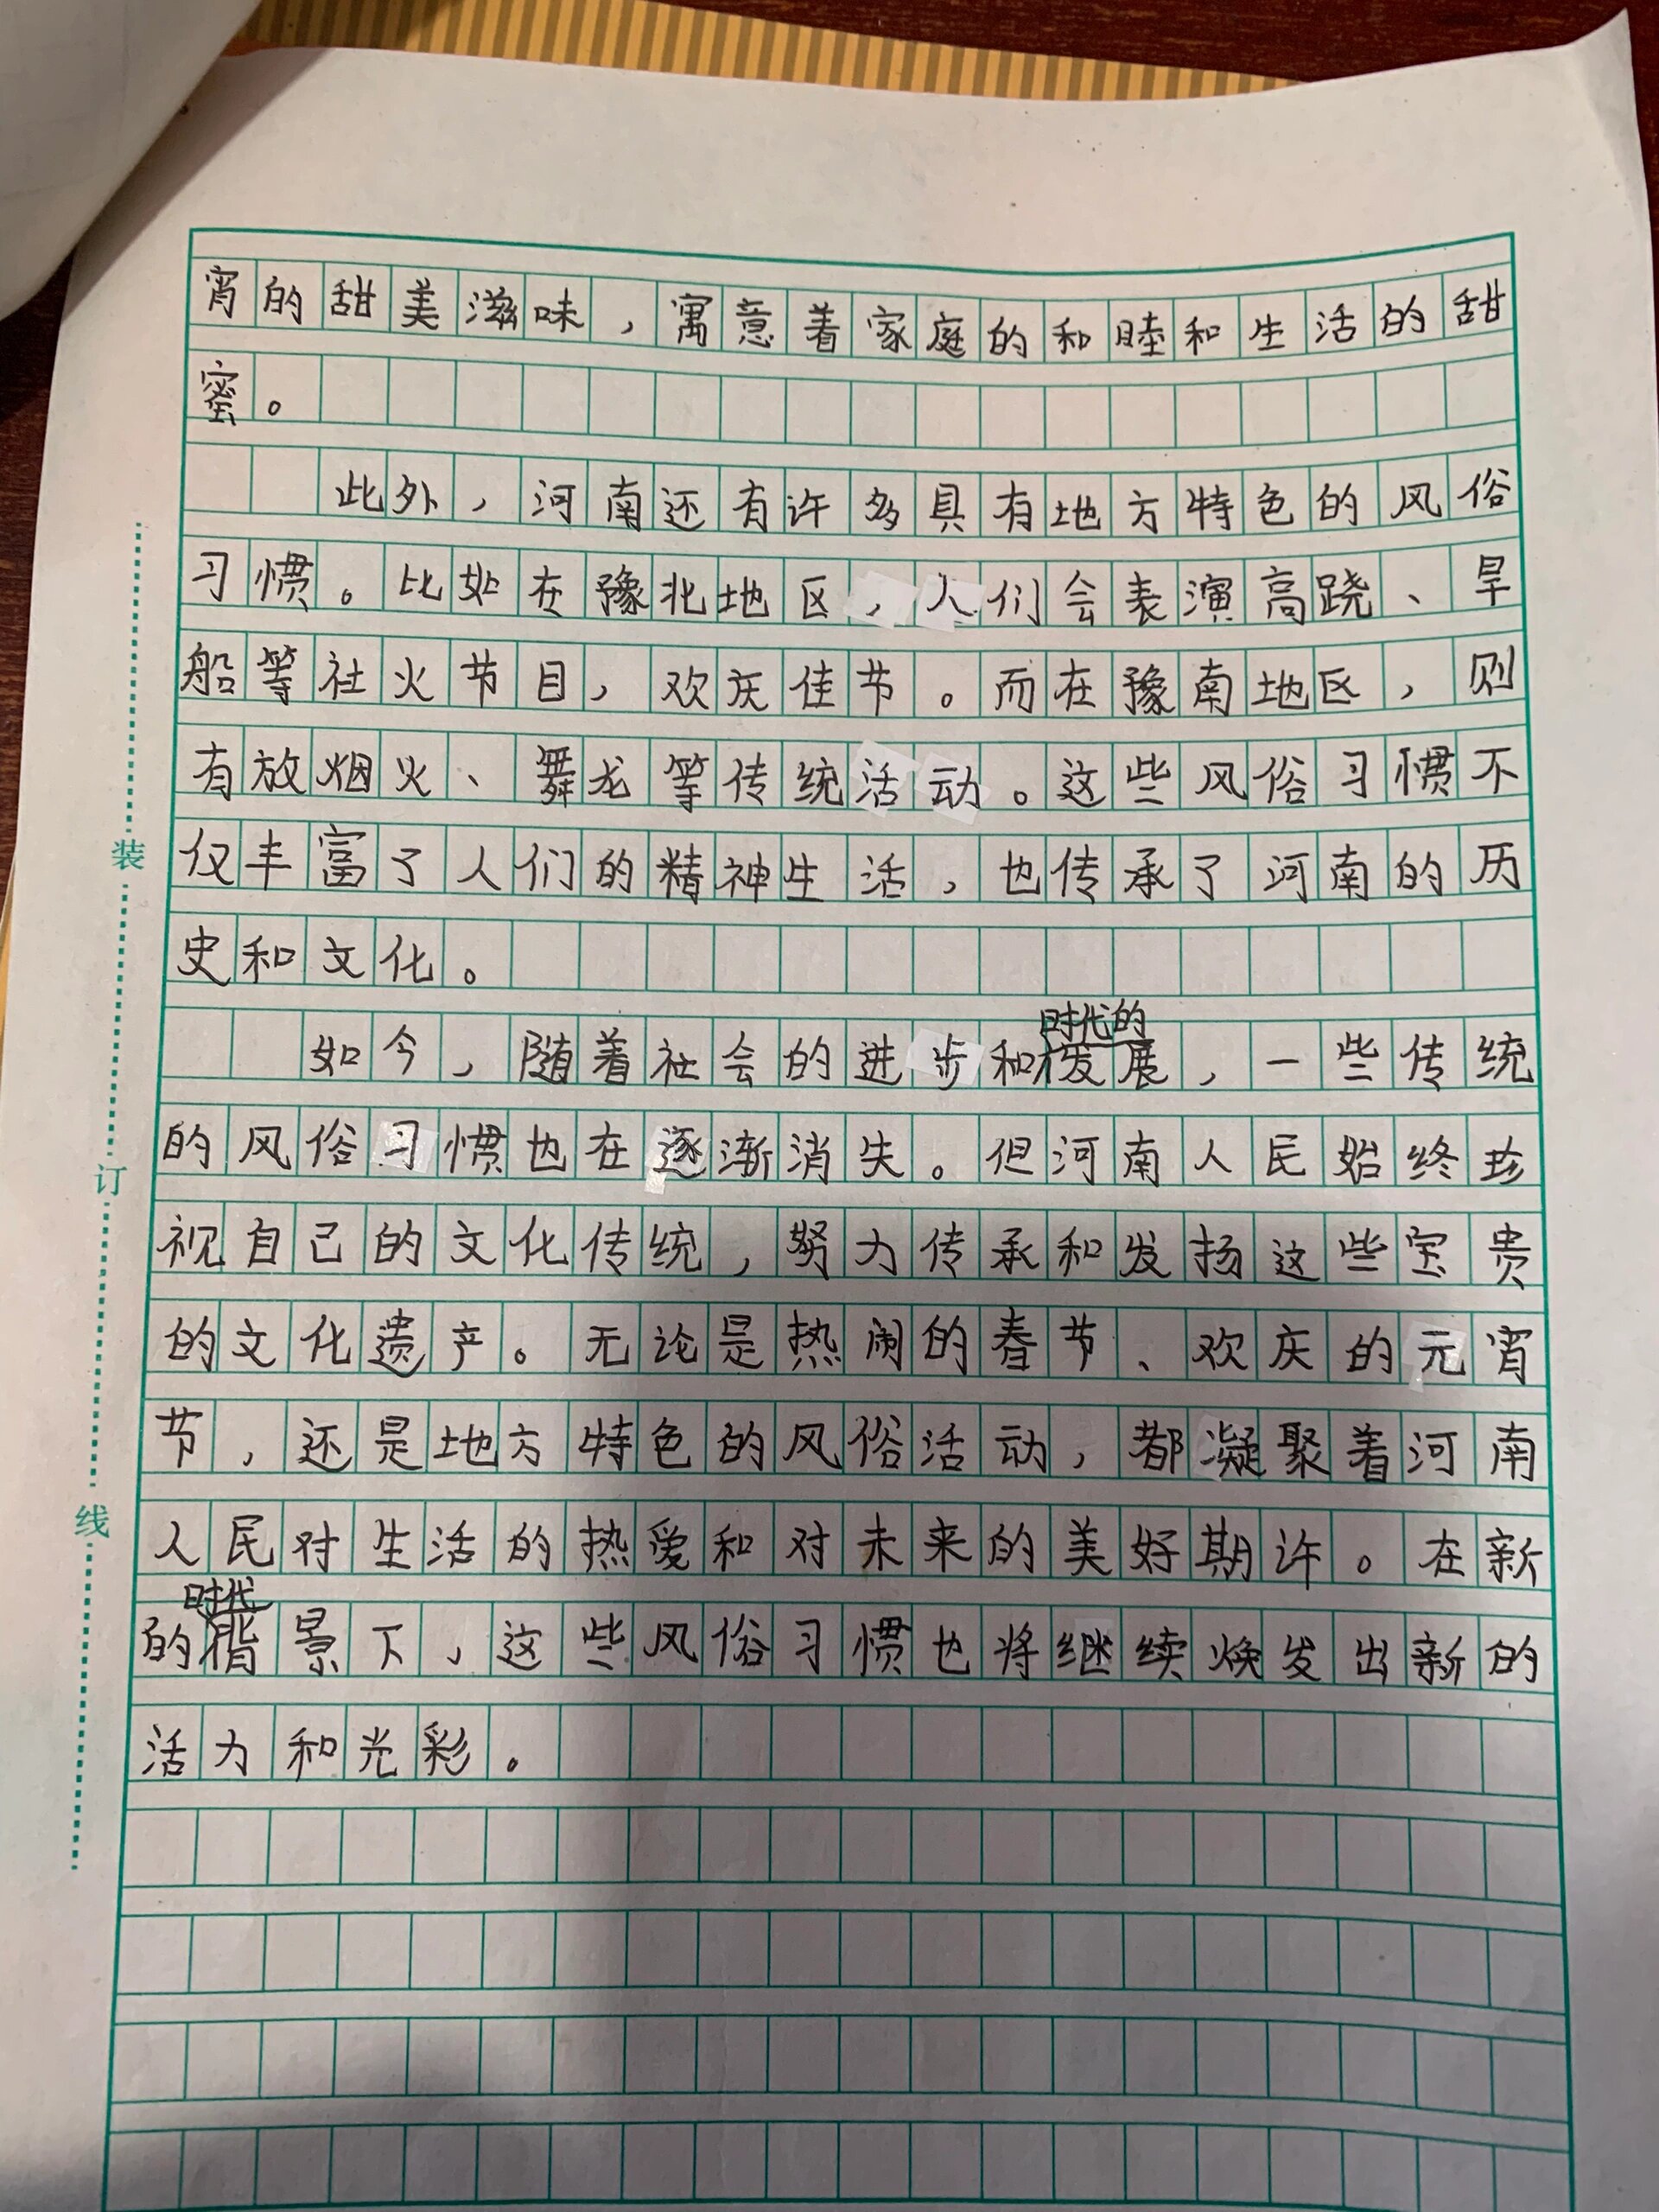 宵的甜美滋味，寓意着家庭的和睦和生活的甜
蜜。
此外，河南还有许多具有地方特色的风俗
习惯。比如在豫北地区，人们会表演高跷、旱
船等社火节目，欢庆佳节。而在豫南地区，则
有放烟火、舞龙等传统活动。这些风俗习惯不
仅丰富了人们的精神生活，也传承了河南的历
史和文化。
如今，随着社会的进步和时代的发展，一些传统
的风俗习惯也在逐渐消失。但河南人民始终珍
视自己的文化传统，努力传承和发扬这些宝贵
的文化遗产。无论是热闹的春节、欢庆的元宵
节，还是地方特色的风俗活动，都凝聚着河南
人民对生活的热爱和对未来的美好期许。在新
的时代背景下，这些风俗习惯也将继续焕发出新的
活力和光彩。
装
订
线